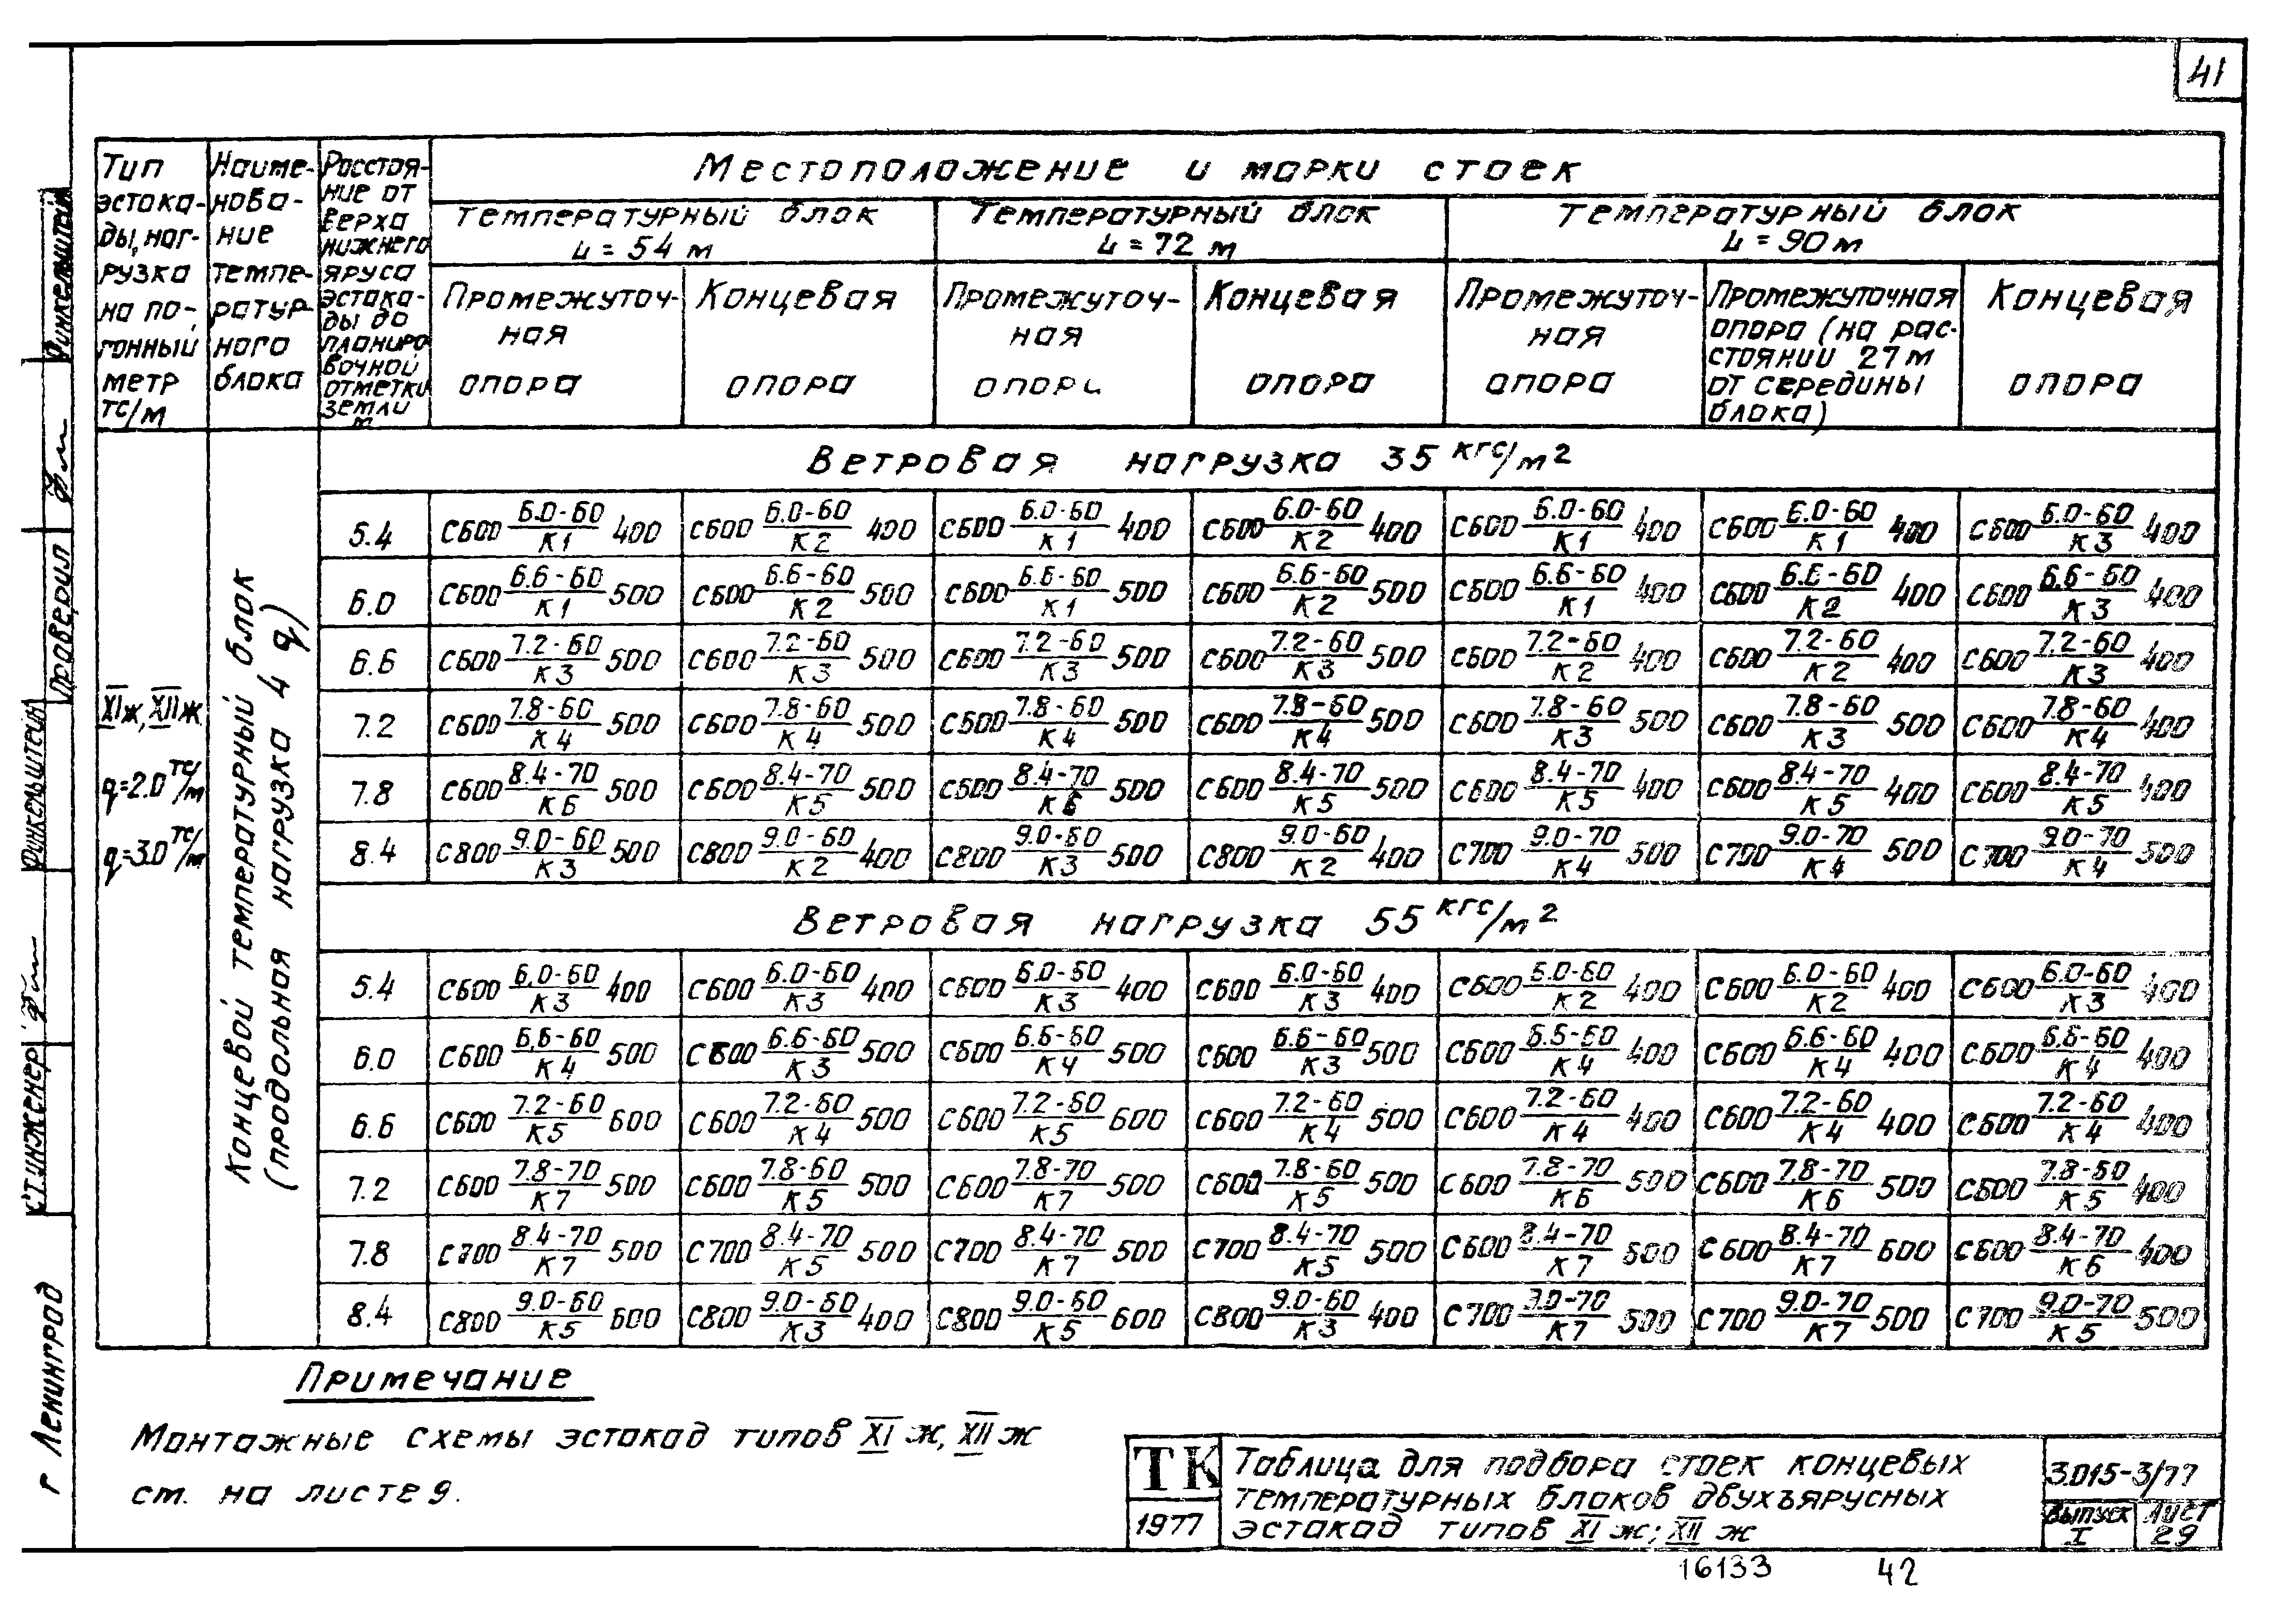 41
Тип эстокады, нагрузка на погонный метр тс/м
Наименование температурного блока
Расстояние от верха нижнего яруса эстокады до планировочной отметки земли м
Местоположение и марки стоек
Температурный блок L = 54 м
Температурный блок L = 72 м
Температурный блок L = 90 м
Промежуточная опора
Концевая опора
Промежуточная опора
Концевая опора
Промежуточная опора
Промежуточная опора (на расстоянии 27 м от середины блока)
Концевая опора
XIж, XIIж
q=2.0 тс/м
q=3.0 тс/м
Концевой температурный блок (продольная нагрузка 4 q)
Ветровая нагрузка 35 кгс/м2
5.4 С600 6.0-60/К1 400 С600 6.0-60/К2 400 С600 6.0-60/К1 400 С600 6.0-60/К2 400 С600 6.0-60/К1 400 С600 6.0-60/К1 400 С600 6.0-60/К3 400
6.0 С600 6.6-60/К1 500 С600 6.6-60/К2 500 С600 6.6-60/К1 500 С600 6.6-60/К2 500 С600 6.6-60/К1 400 С600 6.6-60/К2 400 С600 6.6-60/К3 400
6.6 С600 7.2-60/К3 500 С600 7.2-60/К3 500 С600 7.2-60/К3 500 С600 7.2-60/К3 500 С600 7.2-60/К2 400 С600 7.2-60/К2 400 С600 7.2-60/К3 400
7.2 С600 7.8-60/К4 500 С600 7.8-60/К4 500 С600 7.8-60/К4 500 С600 7.8-60/К4 500 С600 7.8-60/К3 500 С600 7.8-60/К3 500 С600 7.8-60/К4 400
7.8 С600 8.4-70/К6 500 С600 8.4-70/К5 500 С600 8.4-70/К6 500 С600 8.4-70/К5 500 С600 8.4-70/К5 400 С600 8.4-70/К5 400 С600 8.4-70/К5 400
8.4 С800 9.0-60/К3 500 С800 9.0-60/К2 400 С800 9.0-60/К3 500 С800 9.0-60/К2 400 С700 9.0-70/К4 500 С700 9.0-70/К4 500 С700 9.0-70/К4 500
Ветровая нагрузка 55 кгс/м2
5.4 С600 6.0-60/К3 400 С600 6.0-60/К3 400 С600 6.0-60/К3 400 С600 6.0-60/К3 400 С600 6.0-60/К2 400 С600 6.0-60/К2 400 С600 6.0-60/К3 400
6.0 С600 6.6-60/К4 500 С600 6.6-60/К3 500 С600 6.6-60/К4 500 С600 6.6-60/К3 500 С600 6.6-60/К4 400 С600 6.6-60/К4 400 С600 6.6-60/К4 400
6.6 С600 7.2-60/К5 600 С600 7.2-60/К4 500 С600 7.2-60/К5 600 С600 7.2-60/К4 500 С600 7.2-60/К4 400 С600 7.2-60/К4 400 С600 7.2-60/К4 400
7.2 С600 7.8-70/К7 500 С600 7.8-60/К5 500 С600 7.8-70/К7 500 С600 7.8-60/К5 500 С600 7.8-70/К6 500 С600 7.8-70/К6 500 С600 7.8-60/К5 400
7.8 С700 8.4-70/К7 500 С700 8.4-70/К5 500 С700 8.4-70/К7 500 С700 8.4-70/К5 500 С600 8.4-70/К7 600 С600 8.4-70/К7 600 С600 8.4-70/К6 400
8.4 С800 9.0-60/К5 600 С800 9.0-60/К3 400 С800 9.0-60/К5 600 С800 9.0-60/К3 400 С700 9.0-70/К7 500 С700 9.0-70/К7 500 С700 9.0-70/К5 500
Примечание
Монтажные схемы эстокад типов XI ж, XII ж
см. на листе 9.
ТК
1977
Таблица для подбора стоек концевых
температурных блоков двухъярусных
эстакад типов XI ж; XII ж
3.015-3/77
выпуск I
лист 29
16133 42
г Ленинград
Ст.инженер
Финкельштейн
Проверил
Финкельштейн